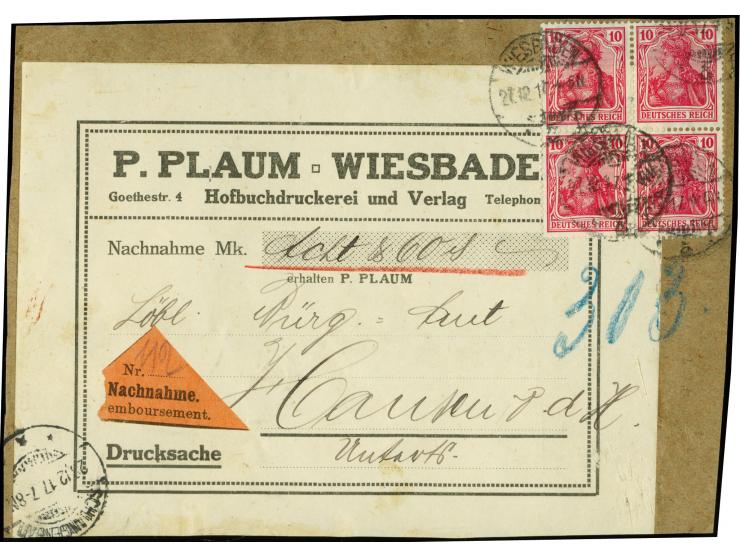 10 10
DEUTSCHES REICH DEUTSCHES REICH
10 10
DEUTSCHES REICH DEUTSCHES REICH
WIESBADEN
27.12.17
P. PLAUM WIESBADE
Goethestr. 4 Hofbuchdruckerei und Verlag Telephon
Nachnahme Mk. Acht & 60 ₰
erhalten P. PLAUM
Löbl. Bürg.=Amt
Nr. 112
Nachnahme.
emboursement.
Hausen v d H.
Drucksache
Untert.
12.17.7-8